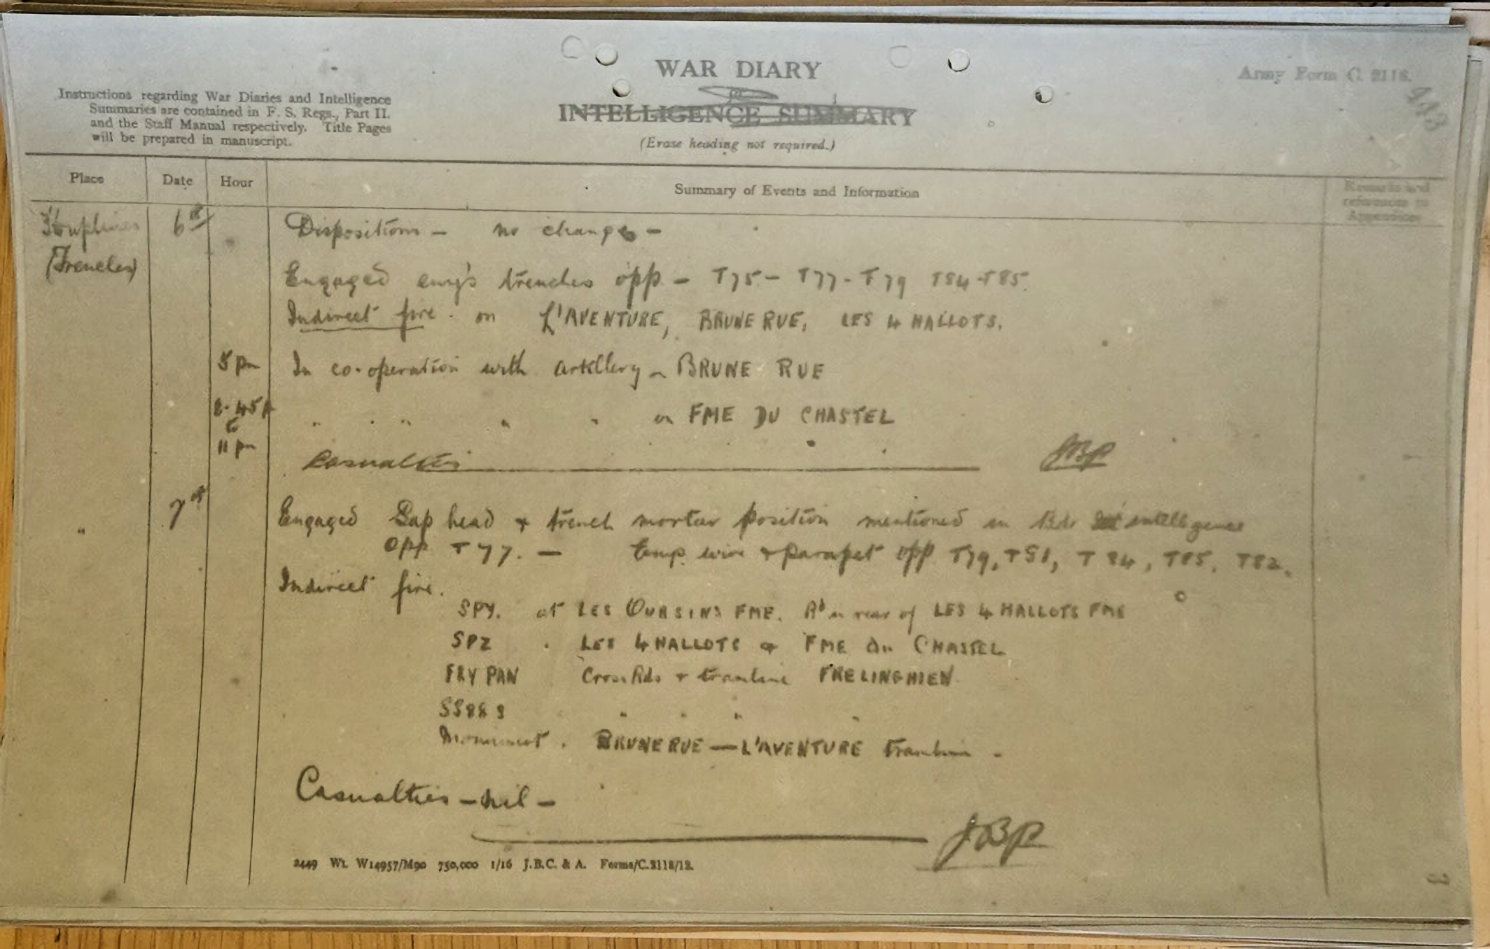 WAR DIARY
Army Form C. 2118.
INTELLIGENCE SUMMARY
(Erase heading not required.)
Instructions regarding War Diaries and Intelligence
Summaries are contained in F. S. Regs., Part II.
and the Staff Manual respectively. Title Pages
will be prepared in manuscript.
443
Place Date Hour Summary of Events and Information Remarks and
references to
Appendices
Houplines 6th Dispositions – no changes –
(Trenches) Engaged enmy's trenches opp – T75 – T77 - T79 T84 - T85.
Indirect fire. on L'AVENTURE, BRUNE RUE, LES 4 HALLOTS.
5 pm In co-operation with artillery on BRUNE RUE
8-45 p " " " " " on FME DU CHASTEL
to
11 pm
Casualties JBP
" 7th Engaged Sap head & trench mortar position mentioned in Bde intelligence
opp T77. – Enmy. wire & parapet opp T79, T81, T84, T85, T82.
Indirect fire.
SPY. at LES OURSINS FME. Rd in rear of LES 4 HALLOTS FME
SPZ " LES 4 HALLOTS & FME du CHASTEL
FRY PAN Cross Rds & tramline FRELINGHIEN
SS88 " " " "
Monument. BRUNE RUE — L'AVENTURE tramline –
Casualties – nil –
JBP
2449 Wt. W14957/M90 750,000 1/16 J.B.C. & A. Forms/C.2118/12.